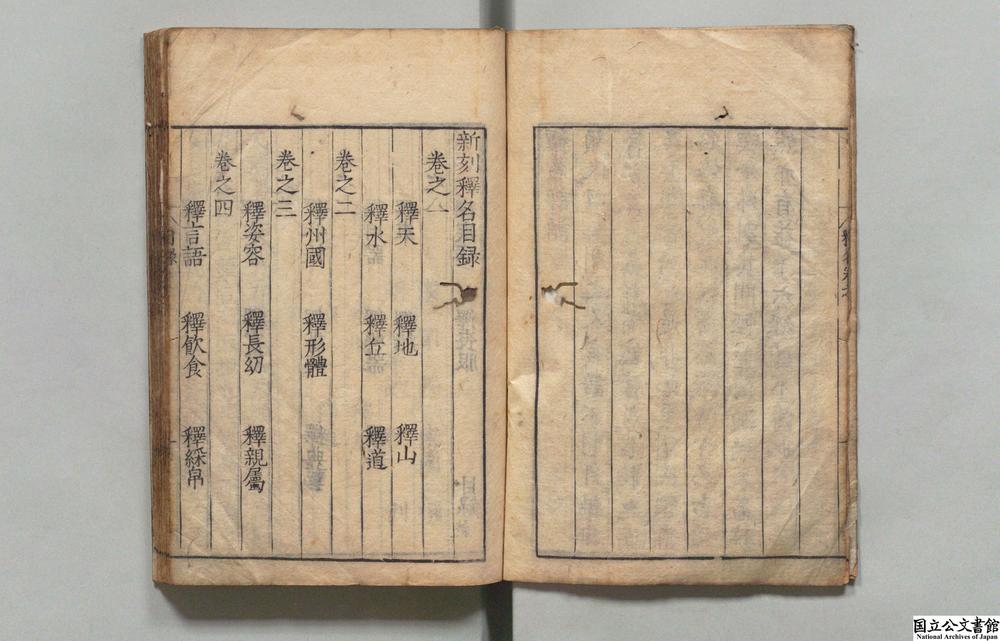 新刻釋名目録
卷之一
釋天 釋地 釋山
釋水 釋丘 釋道
卷之二
釋州國 釋形體
卷之三
釋姿容 釋長幼 釋親屬
卷之四
釋言語 釋飲食 釋綵帛
国立公文書館
National Archives of Japan